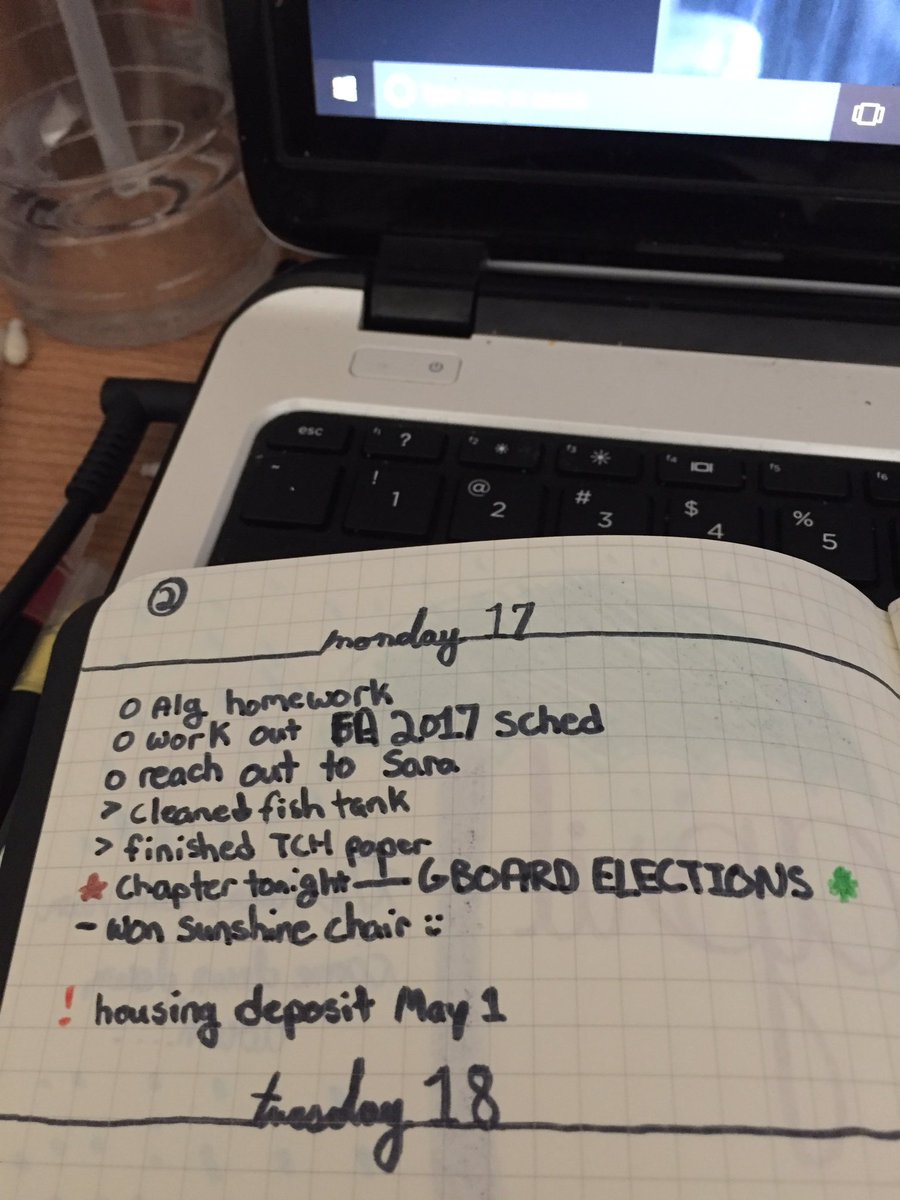 esc
f1 ?
f2
f3
f4
f5
f6
! 1
@ 2
# 3
$ 4
% 5
2
monday 17
o Alg homework
o work out 2017 sched
o reach out to Sara
> cleaned fish tank
> finished TCH paper
Chapter tonight — GBOARD ELECTIONS
- won sunshine chair :)
! housing deposit May 1
tuesday 18